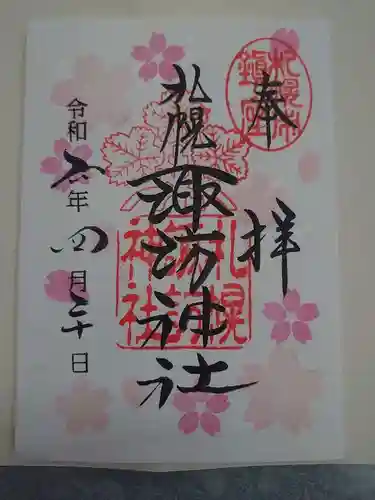 奉拝
札幌市鎮座
札幌諏訪神社
札幌諏訪神社
令和 年四月 十日